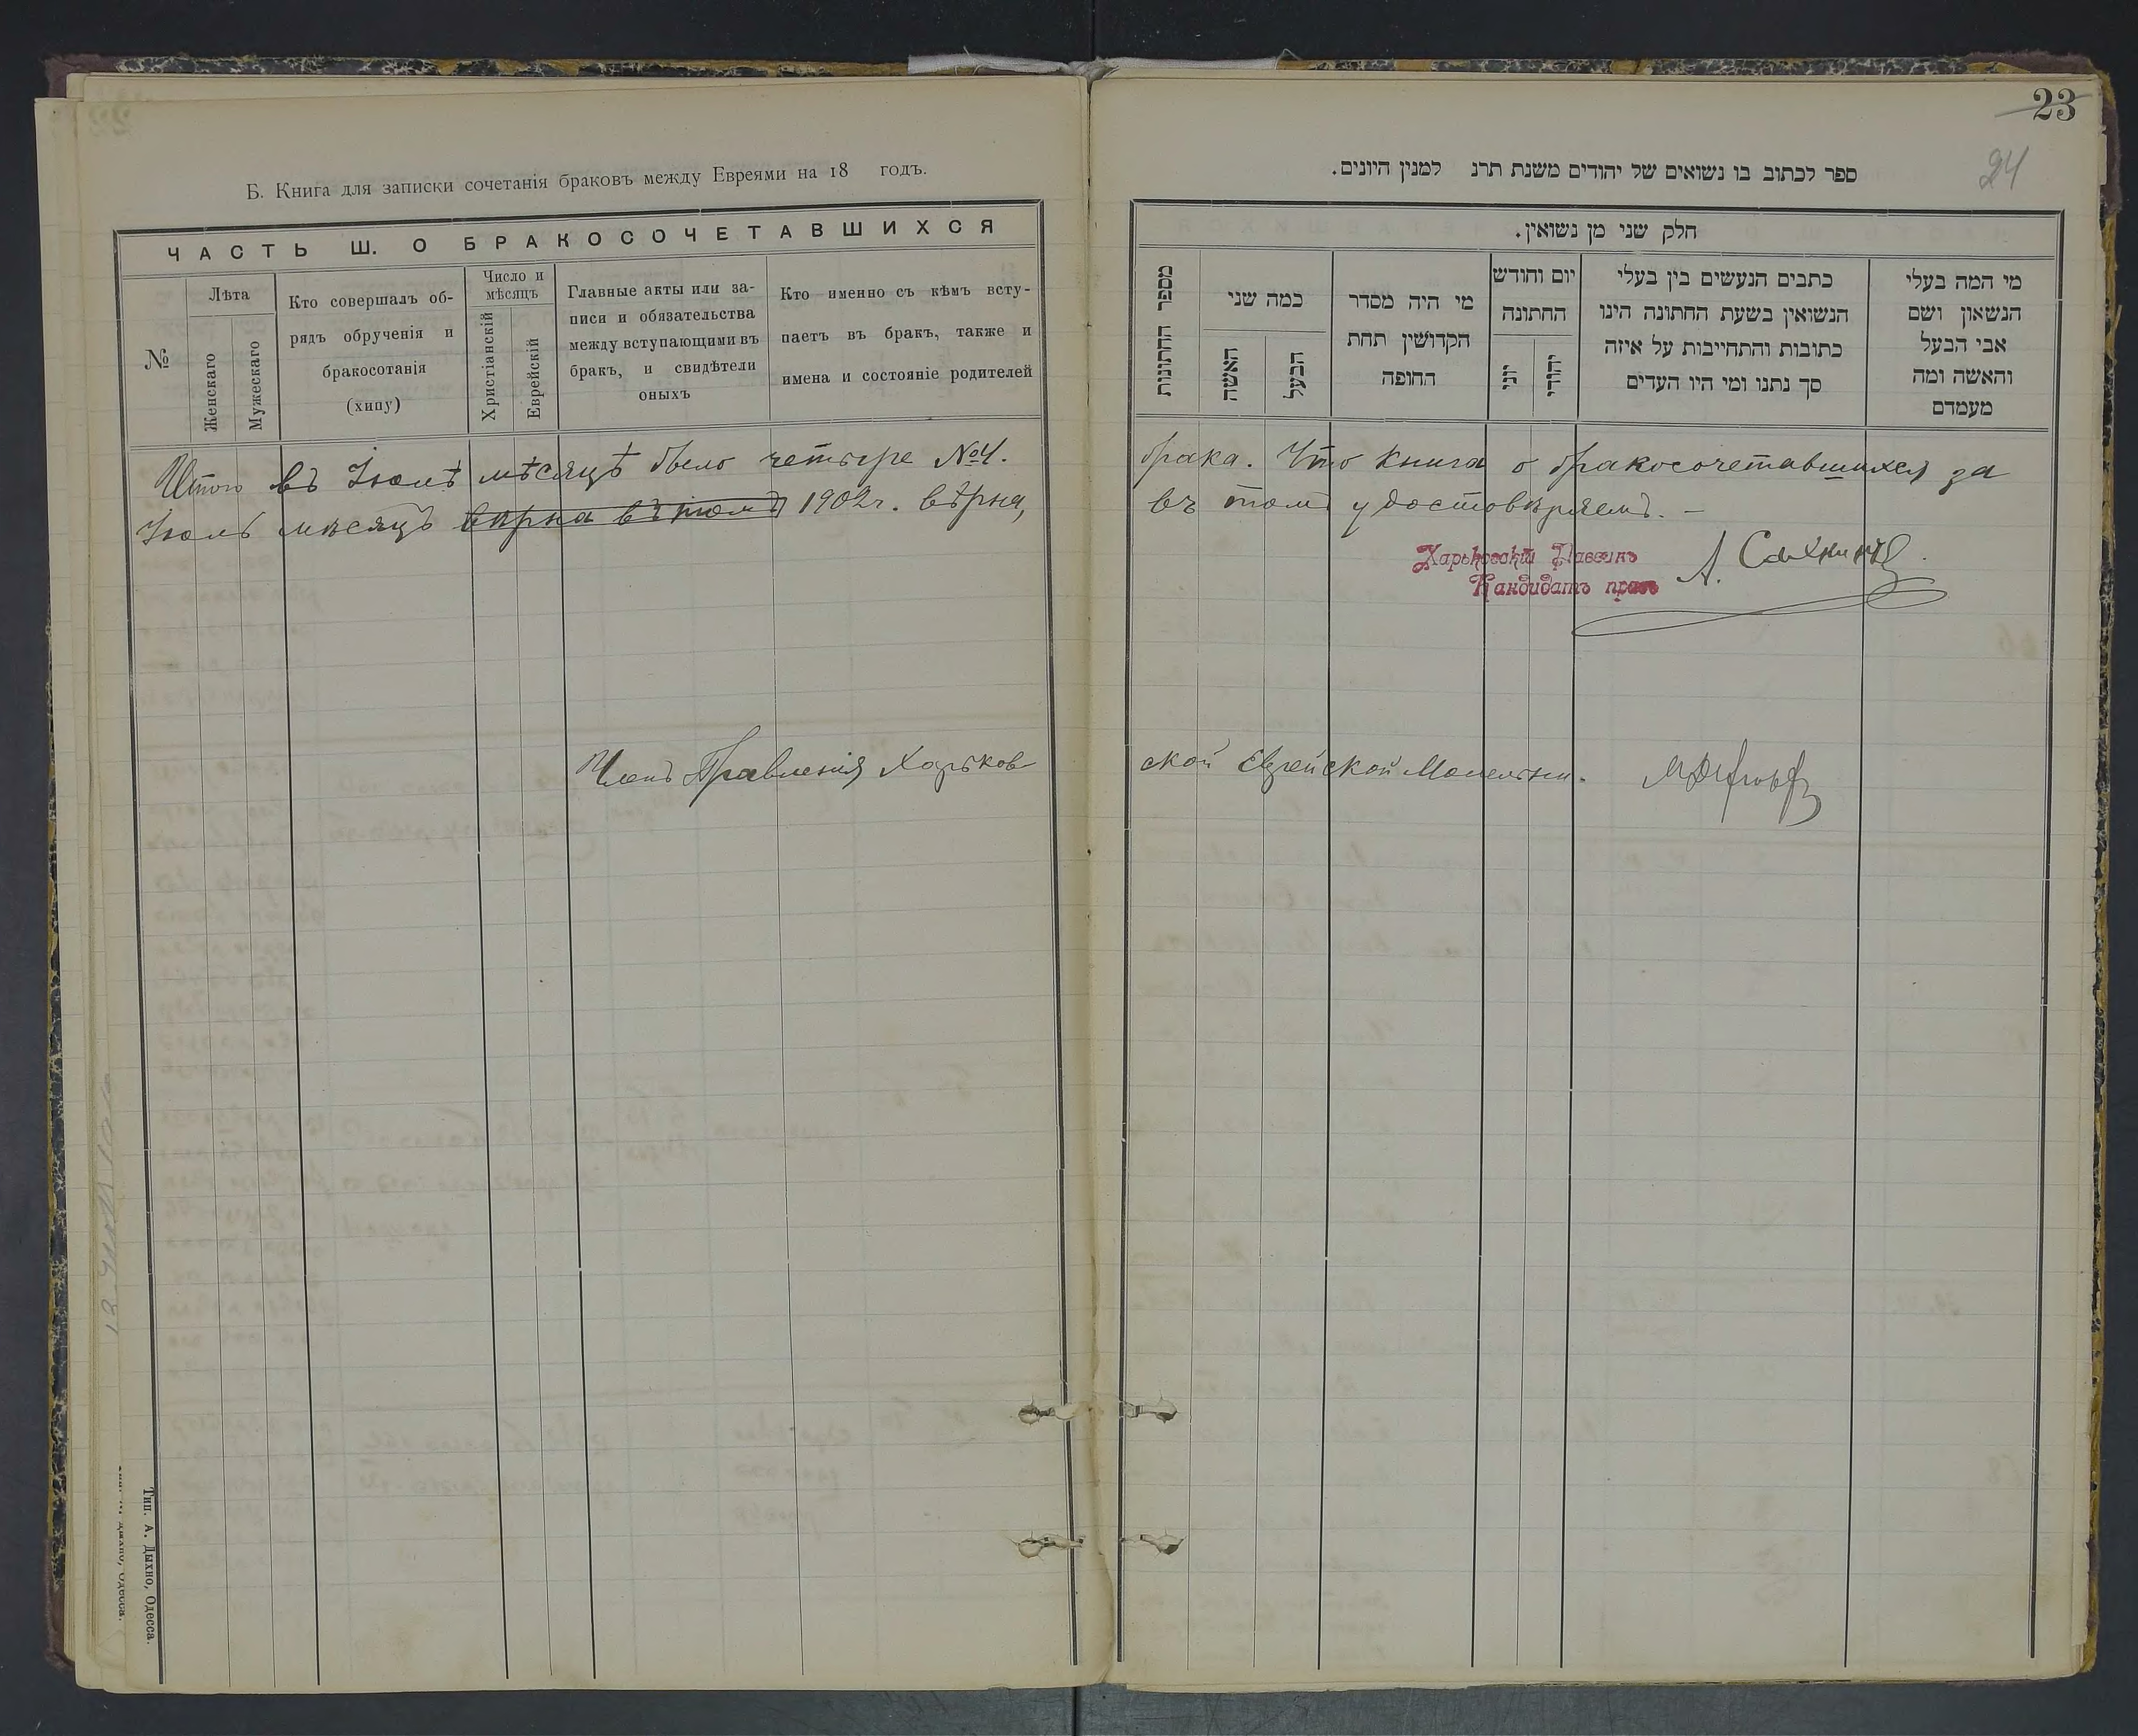 23
24
Б. Книга для записки сочетанія браковъ между Евреями на 18 годъ.
ЧАСТЬ Ш. О БРАКОСОЧЕТАВШИХСЯ
№
Лѣта
Женскаго
Мужескаго
Кто совершалъ об-
рядъ обрученія и
бракосотанія
(хипу)
Число и
мѣсяцъ
Христіанскій
Еврейскій
Главные акты или за-
писи и обязательства
между вступающими въ
бракъ, и свидѣтели
оныхъ
Кто именно съ кѣмъ всту-
паетъ въ бракъ, также и
имена и состояніе родителей
Итого въ Іюлѣ мѣсяцѣ было четыре №4.
Іюль мѣсяцъ вѣрна въ томъ 1902г. вѣрна,
Членъ Правленія Харьков-
Тип. А. Дыхно, Одесса.
ספר לכתוב בו נשואים של יהודים משנת תרנ למנין היונים.
חלק שני מן נשואין.
מספר החתונות
כמה שני
האשה
הבעל
מי היה מסדר
הקדושין תחת
החופה
יום וחודש
החתונה
יוני
יהודי
כתבים הנעשים בין בעלי
הנשואין בשעת החתונה הינו
כתובות והתחייבות על איזה
סך נתנו ומי היו העדים
מי המה בעלי
הנשואין ושם
אבי הבעל
והאשה ומה
מעמדם
брака. Что книга о бракосочетавшихся за
въ томъ удостовѣряемъ. –
Харьковскій Раввинъ
Кандидатъ правъ
А.
ской Еврейской Молельни.